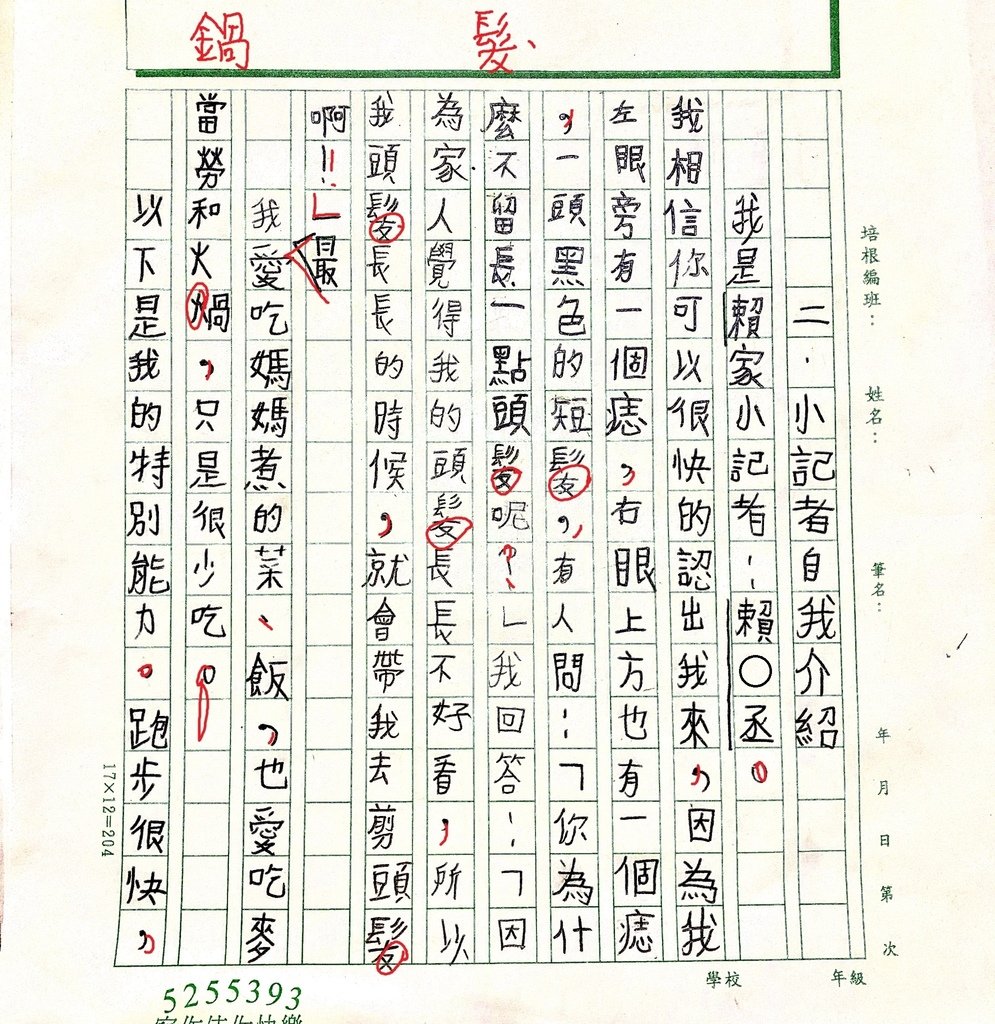 鍋 髮
培根編班： 姓名： 筆名： 年 月 日 第 次
二．小記者自我介紹
我是賴家小記者：賴○丞。
我相信你可以很快的認出我來，因為我
左眼旁有一個痣，右眼上方也有一個痣
，一頭黑色的短髮，有人問：「你為什
麼不留長一點頭髮呢？」我回答：「因
為家人覺得我的頭髮長長不好看，所以
我頭髮長長的時候，就會帶我去剪頭髮
啊!!」最
我愛吃媽媽煮的菜、飯，也愛吃麥
當勞和火煱，只是很少吃。
以下是我的特別能力。跑步很快，
17×12=204
學校 年級
5255393